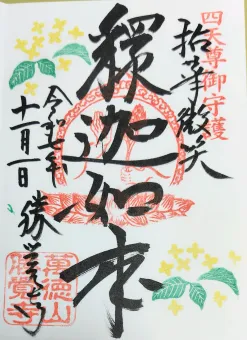 四天尊御守護
拈華微笑
釋迦如来
令和七年
十一月一日
勝覚寺
萬徳山
勝覚寺